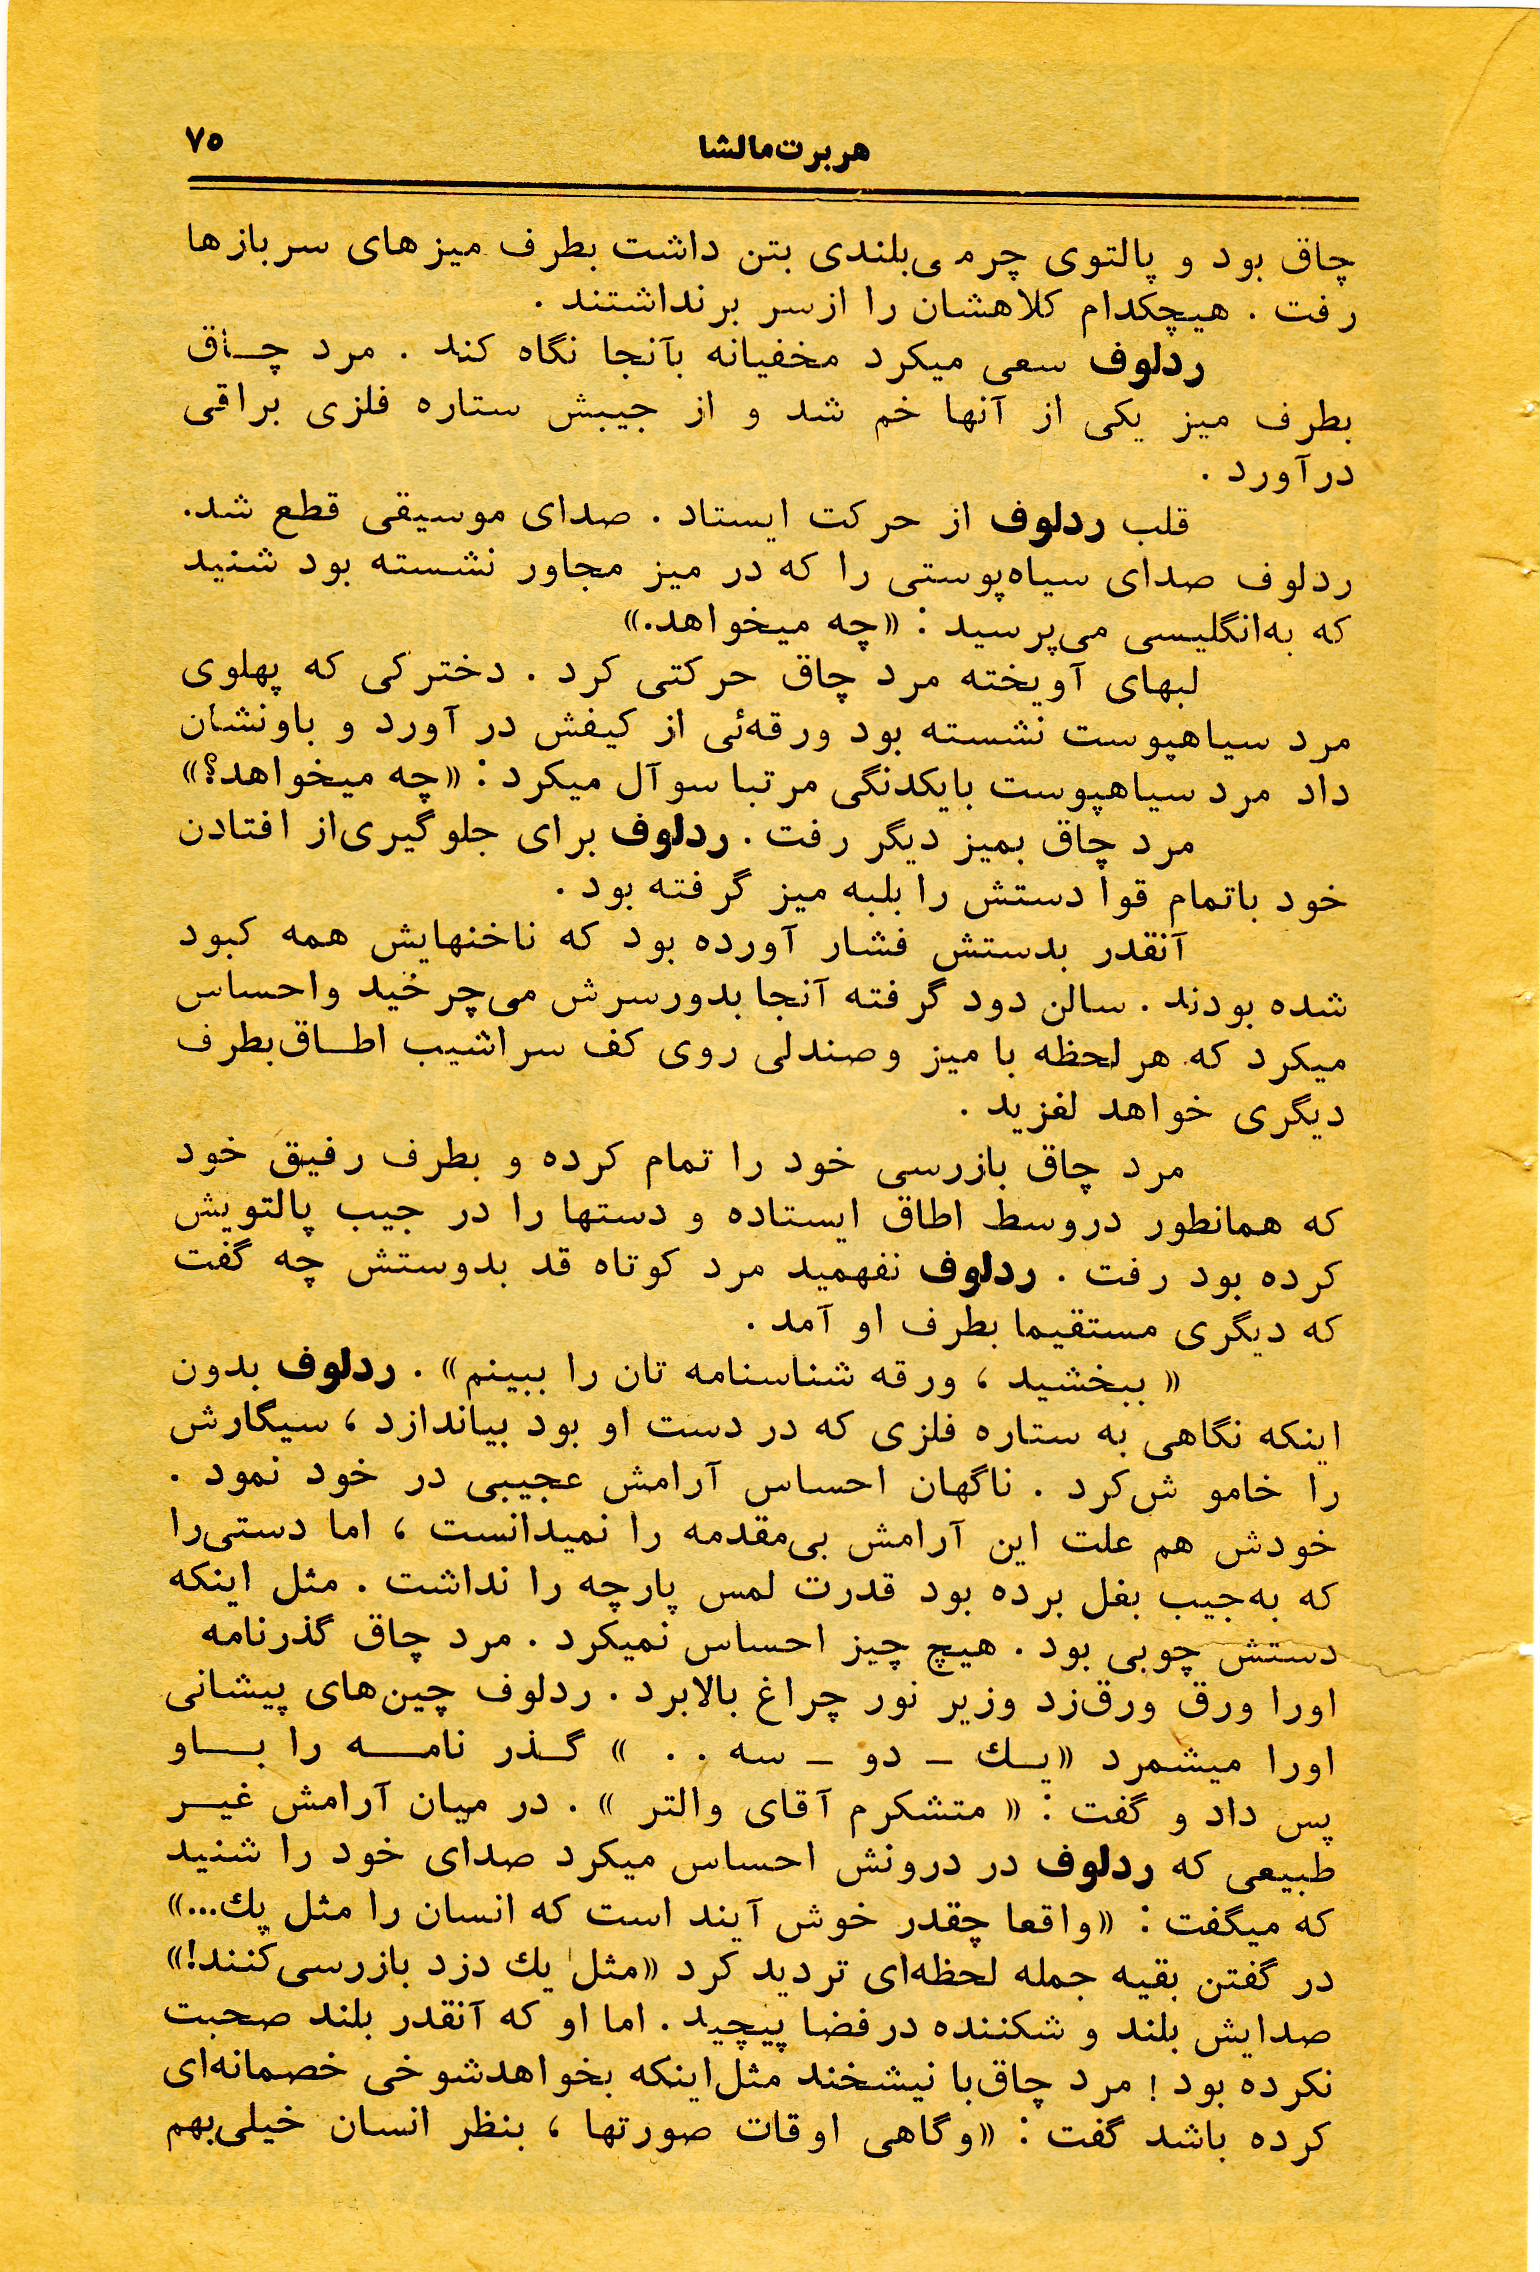 هربرت‌مالشا
۷۵
چاق بود و پالتوی چرمی‌بلندی بتن داشت بطرف میزهای سربازها
رفت . هیچکدام کلاهشان را ازسر برنداشتند .
ردلوف سعی میکرد مخفیانه بآنجا نگاه کند . مرد چـاق
بطرف میز یکی از آنها خم شد و از جیبش ستاره فلزی براقی
درآورد .
قلب ردلوف از حرکت ایستاد . صدای موسیقی قطع شد.
ردلوف صدای سیاه‌پوستی را که در میز مجاور نشسته بود شنید
که به‌انگلیسی می‌پرسید : «چه میخواهد.»
لبهای آویخته مرد چاق حرکتی کرد . دخترکی که پهلوی
مرد سیاهپوست نشسته بود ورقه‌ئی از کیفش در آورد و باونشان
داد مرد سیاهپوست بایکدنگی مرتبا سوآل میکرد : «چه میخواهد؟»
مرد چاق بمیز دیگر رفت . ردلوف برای جلوگیری‌از افتادن
خود باتمام قوا دستش را بلبه میز گرفته بود .
آنقدر بدستش فشار آورده بود که ناخنهایش همه کبود
شده بودند . سالن دود گرفته آنجا بدورسرش می‌چرخید واحساس
میکرد که هر لحظه با میز وصندلی روی کف سراشیب اطـاق‌بطرف
دیگری خواهد لغزید .
مرد چاق بازرسی خود را تمام کرده و بطرف رفیق خود
که همانطور دروسط اطاق ایستاده و دستها را در جیب پالتویش
کرده بود رفت . ردلوف نفهمید مرد کوتاه قد بدوستش چه گفت
که دیگری مستقیما بطرف او آمد .
« ببخشید ، ورقه شناسنامه تان را ببینم» . ردلوف بدون
اینکه نگاهی به ستاره فلزی که در دست او بود بیاندازد ، سیگارش
را خامو ش‌کرد . ناگهان احساس آرامش عجیبی در خود نمود .
خودش هم علت این آرامش بی‌مقدمه را نمیدانست ، اما دستی‌را
که به‌جیب بغل برده بود قدرت لمس پارچه را نداشت . مثل اینکه
دستش چوبی بود . هیچ چیز احساس نمیکرد . مرد چاق گذرنامه
اورا ورق ورق‌زد وزیر نور چراغ بالابرد . ردلوف چین‌های پیشانی
اورا میشمرد «یـك ـ دو ـ سه . . » گـذر نامـه را بـاو
پس داد و گفت : « متشکرم آقای والتر » . در میان آرامش غیـر
طبیعی که ردلوف در درونش احساس میکرد صدای خود را شنید
که میگفت : «واقعا چقدر خوش آیند است که انسان را مثل یك...»
در گفتن بقیه جمله لحظه‌ای تردید کرد «مثل یك دزد بازرسی‌کنند!»
صدایش بلند و شکننده درفضا پیچید . اما او که آنقدر بلند صحبت
نکرده بود ! مرد چاق‌با نیشخند مثل‌اینکه بخواهدشوخی خصمانه‌ای
کرده باشد گفت : «وگاهی اوقات صورتها ، بنظر انسان خیلی‌بهم